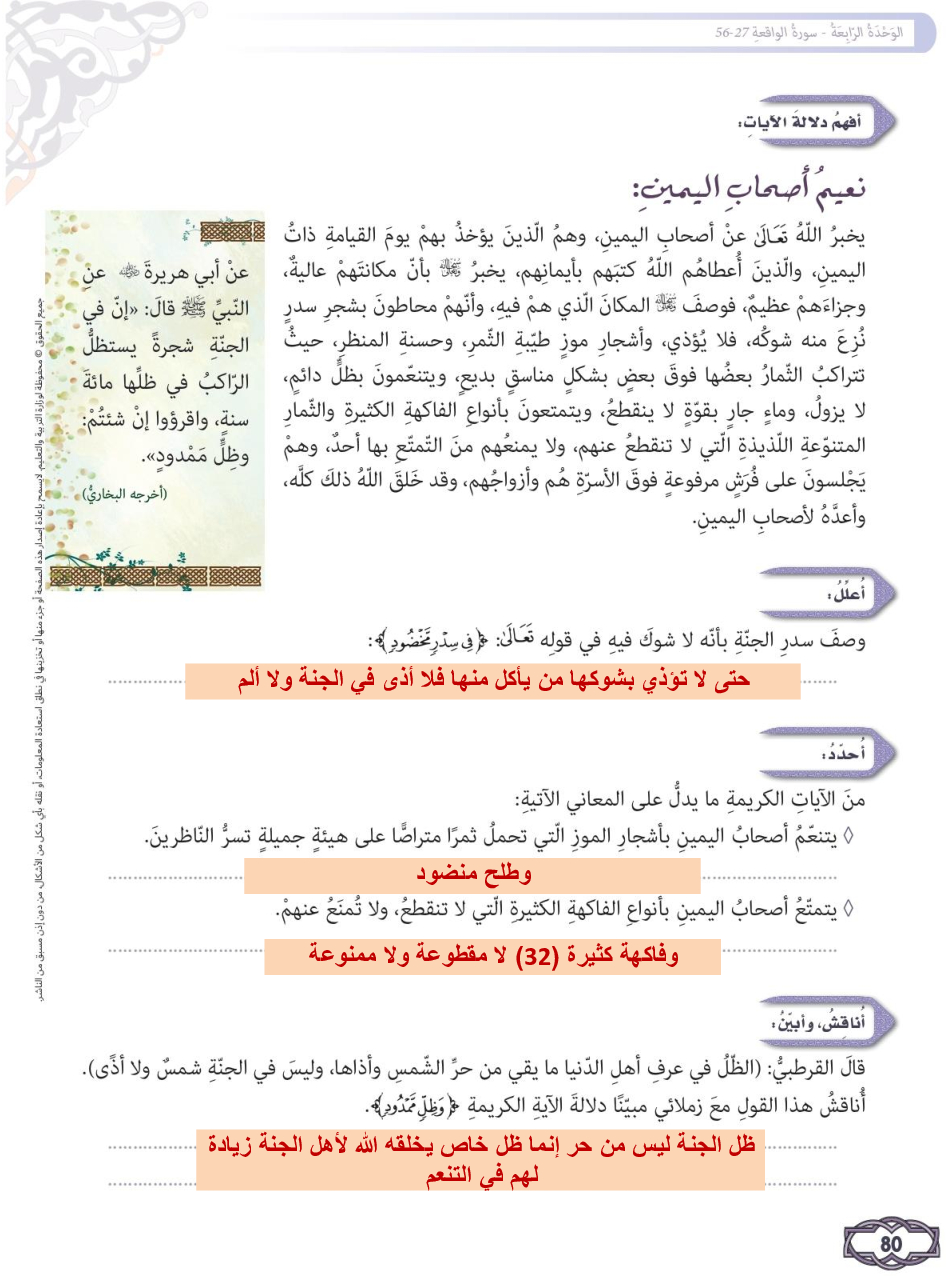 الوَحْدَةُ الرّابِعَةُ - سورةُ الواقعةِ 27-56
أفهمُ دلالةَ الآياتِ:
نعيمُ أصحابِ اليمينِ:
يخبرُ اللّهُ تَعَالَىٰ عنْ أصحابِ اليمينِ، وهمُ الّذينَ يؤخذُ بهمْ يومَ القيامةِ ذاتُ
اليمينِ، والّذينَ أُعطاهُم اللّهُ كتبَهم بأيمانِهم، يخبرُ ﷻ بأنّ مكانتَهمْ عاليةٌ،
وجزاءَهمْ عظيمٌ، فوصفَ ﷻ المكانَ الّذي همْ فيهِ، وأنّهمْ محاطونَ بشجرِ سدرٍ
نُزِعَ منه شوكُه، فلا يُؤذي، وأشجارِ موزٍ طيّبةِ الثّمرِ، وحسنةِ المنظرِ، حيثُ
تتراكبُ الثّمارُ بعضُها فوقَ بعضٍ بشكلٍ مناسقٍ بديعٍ، ويتنعّمونَ بظلٍّ دائمٍ،
لا يزولُ، وماءٍ جارٍ بقوّةٍ لا ينقطعُ، ويتمتعونَ بأنواعِ الفاكهةِ الكثيرةِ والثّمارِ
المتنوّعةِ اللّذيذةِ الّتي لا تنقطعُ عنهم، ولا يمنعُهم منَ التّمتّعِ بها أحدٌ، وهمْ
يَجْلسونَ على فُرَشٍ مرفوعةٍ فوقَ الأسرّةِ هُم وأزواجُهم، وقد خَلقَ اللّهُ ذلكَ كلَّه،
وأعدَّهُ لأصحابِ اليمينِ.
عنْ أبي هريرةَ ﷺ عنِ
النّبيِّ ﷺ قالَ: «إنّ في
الجنّةِ شجرةً يستظلُّ
الرّاكبُ في ظلِّها مائةَ
سنةٍ، واقرؤوا إنْ شئتُمْ:
وظِلٍّ مَمْدودٍ».
(أخرجه البخاريُّ)
أُعلّلُ:
وصفَ سدرِ الجنّةِ بأنّه لا شوكَ فيهِ في قولِه تَعَالَىٰ: ﴿فِي سِدْرٍ مَّخْضُودٍ﴾:
حتى لا تؤذي بشوكها من يأكل منها فلا أذى في الجنة ولا ألم
أُحدّدُ:
منَ الآياتِ الكريمةِ ما يدلُّ على المعاني الآتيةِ:
◊ يتنعّمُ أصحابُ اليمينِ بأشجارِ الموزِ الّتي تحملُ ثمرًا متراصًّا على هيئةٍ جميلةٍ تسرُّ النّاظرينَ.
وطلح منضود
◊ يتمتّعُ أصحابُ اليمينِ بأنواعِ الفاكهةِ الكثيرةِ الّتي لا تنقطعُ، ولا تُمنَعُ عنهمْ.
وفاكهة كثيرة (32) لا مقطوعة ولا ممنوعة
أُناقشُ، وأبيّنُ:
قالَ القرطبيُّ: (الظّلُ في عرفِ أهلِ الدّنيا ما يقي من حرِّ الشّمسِ وأذاها، وليسَ في الجنّةِ شمسٌ ولا أذًى).
أُناقشُ هذا القولِ معَ زملائي مبيّنًا دلالةَ الآيةِ الكريمةِ ﴿وَظِلٍّ مَّمْدُودٍ﴾.
ظل الجنة ليس من حر إنما ظل خاص يخلقه الله لأهل الجنة زيادة
لهم في التنعم
جميع الحقوق © محفوظة لوزارة التربية والتعليم. لا يسمح بإعادة إصدار هذه الصفحة أو جزء منها أو تخزينها في نطاق استعادة المعلومات، أو نقله بأي شكل من الأشكال، من دون إذن مسبق من الناشر.
80